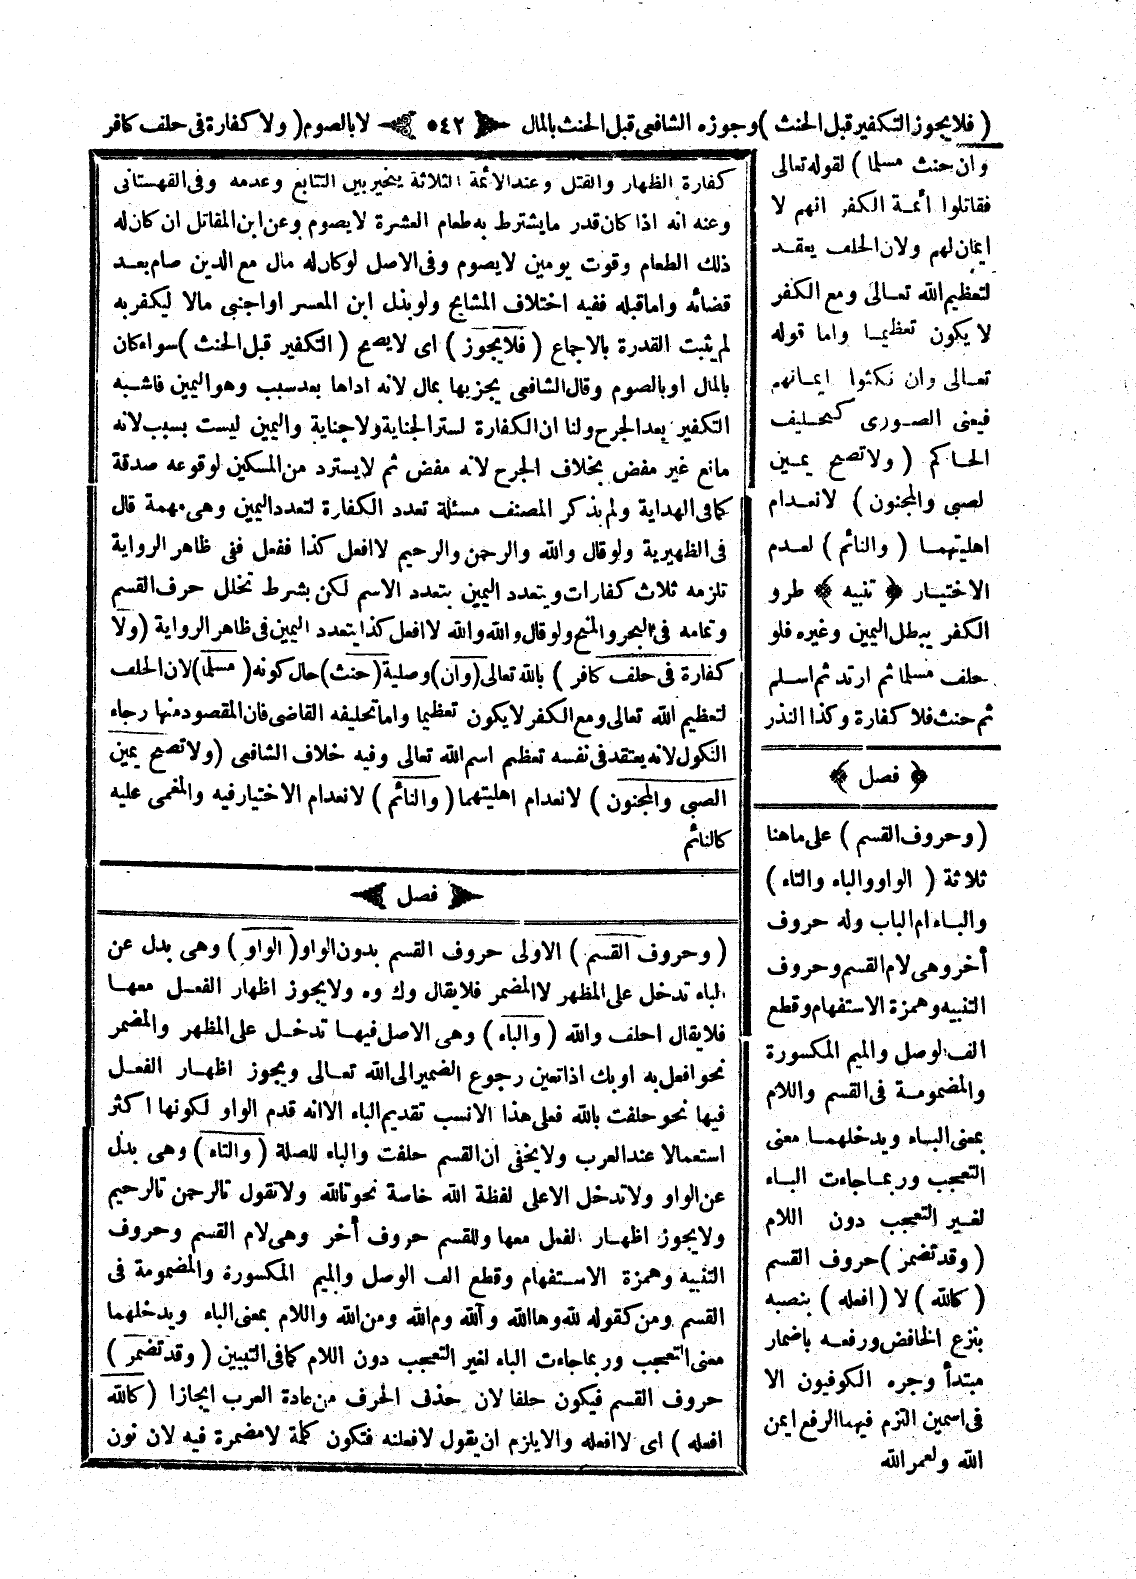 ( فلا يجوز التكفير قبل الحنث ) وجوزه الشافعى قبل الحنث بالمال ﴿ ٥٤٢ ﴾ لا بالصوم ( ولا كفارة فى حلف كافر
وان حنث مسلما ) لقوله تعالى
فقاتلوا أئمة الكفر انهم لا
ايمان لهم ولان الحلف يعقد
لتعظيم الله تعالى ومع الكفر
لا يكون تعظيما واما قوله
تعالى وان نكثوا ايمانهم
فيعنى الصورى كتحليف
الحاكم ( ولا تصح يمين
لصبى والمجنون ) لانعدام
اهليتهما ( والنائم ) لعدم
الاختيار ﴿ تنبيه ﴾ طرو
الكفر يبطل اليمين وغيره فلو
حلف مسلما ثم ارتد ثم اسلم
ثم حنث فلا كفارة وكذا النذر
﴿ فصل ﴾
( وحروف القسم ) على ماهنا
ثلاثة ( الواو والباء والتاء )
والباء ام الباب وله حروف
أخر وهى لام القسم وحروف
التنبيه وهمزة الاستفهام وقطع
الف الوصل والميم المكسورة
والمضمومة فى القسم واللام
بمعنى الباء ويدخلهما معنى
التعجب وربما جاءت الباء
لغير التعجب دون اللام
( وقد تضمر ) حروف القسم
( كالله ) لا ( افعله ) بنصبه
بنزع الخافض ورفعه باضمار
مبتدأ وجره الكوفيون الا
فى اسمين التزم فيهما الرفع ايمن
الله ولعمر الله
كفارة الظهار والقتل وعند الائمة الثلاثة يتخير بين التتابع وعدمه وفى القهستانى
وعنه انه اذا كان قدر ما يشترط به طعام العشرة لا يصوم وعن ابن المقاتل ان كان له
ذلك الطعام وقوت يومين لا يصوم وفى الاصل لو كان له مال مع الدين صام بعد
قضائه واما قبله ففيه اختلاف المشايخ ولو بذل ابن المعسر او اجنبى مالا ليكفر به
لم يثبت القدرة بالاجماع ( فلا يجوز ) اى لا يصح ( التكفير قبل الحنث ) سواء كان
بالمال او بالصوم وقال الشافعى يجزيها بمال لانه اداها بعد سبب وهو اليمين فاشبه
التكفير بعد الجرح ولنا ان الكفارة لستر الجناية ولا جناية واليمين ليست بسبب لانه
مانع غير مفض بخلاف الجرح لانه مفض ثم لا يسترد من المسكين لوقوعه صدقة
كما فى الهداية ولم يذكر المصنف مسئلة تعدد الكفارة لتعدد اليمين وهى مهمة قال
فى الظهيرية ولو قال والله والرحمن والرحيم لا افعل كذا ففعل ففى ظاهر الرواية
تلزمه ثلاث كفارات ويتعدد اليمين بتعدد الاسم لكن بشرط تخلل حرف القسم
وتمامه فى البحر والمنح ولو قال والله والله لا افعل كذا يتعدد اليمين فى ظاهر الرواية ( ولا
كفارة فى حلف كافر ) بالله تعالى ( وان ) وصلية ( حنث ) حال كونه ( مسلما ) لان الحلف
لتعظيم الله تعالى ومع الكفر لا يكون تعظيما واما تحليفه القاضى فان المقصود منها رجاء
النكول لانه يعتقد فى نفسه تعظيم اسم الله تعالى وفيه خلاف الشافعى ( ولا تصح يمين
الصبى والمجنون ) لانعدام اهليتهما ( والنائم ) لانعدام الاختيار فيه والمغمى عليه
كالنائم
﴿ فصل ﴾
( وحروف القسم ) الاولى حروف القسم بدون الواو ( الواو ) وهى بدل عن
الباء تدخل على المظهر لا المضمر فلا يقال وك وه ولا يجوز اظهار الفعل معها
فلا يقال احلف والله ( والباء ) وهى الاصل فيها تدخل على المظهر والمضمر
نحو افعل به او بك اذا تعين رجوع الضمير الى الله تعالى ويجوز اظهار الفعل
فيها نحو حلفت بالله فعلى هذا الانسب تقديم الباء الا انه قدم الواو لكونها اكثر
استعمالا عند العرب ولا يخفى ان القسم حلفت والباء للصلة ( والتاء ) وهى بدل
عن الواو ولا تدخل الا على لفظة الله خاصة نحو تالله ولا تقول تالرحمن تالرحيم
ولا يجوز اظهار الفعل معها وللقسم حروف أخر وهى لام القسم وحروف
التنبيه وهمزة الاستفهام وقطع الف الوصل والميم المكسورة والمضمومة فى
القسم ومن كقوله لله وها الله وآلله وم الله ومن الله واللام بمعنى الباء ويدخلهما
معنى التعجب وربما جاءت الباء لغير التعجب دون اللام كما فى التبيين ( وقد تضمر )
حروف القسم فيكون حلفا لان حذف الحرف من عادة العرب ايجازا ( كالله
افعله ) اى لا افعله والا يلزم ان يقول لافعلنه فتكون كلمة لا مضمرة فيه لان نون